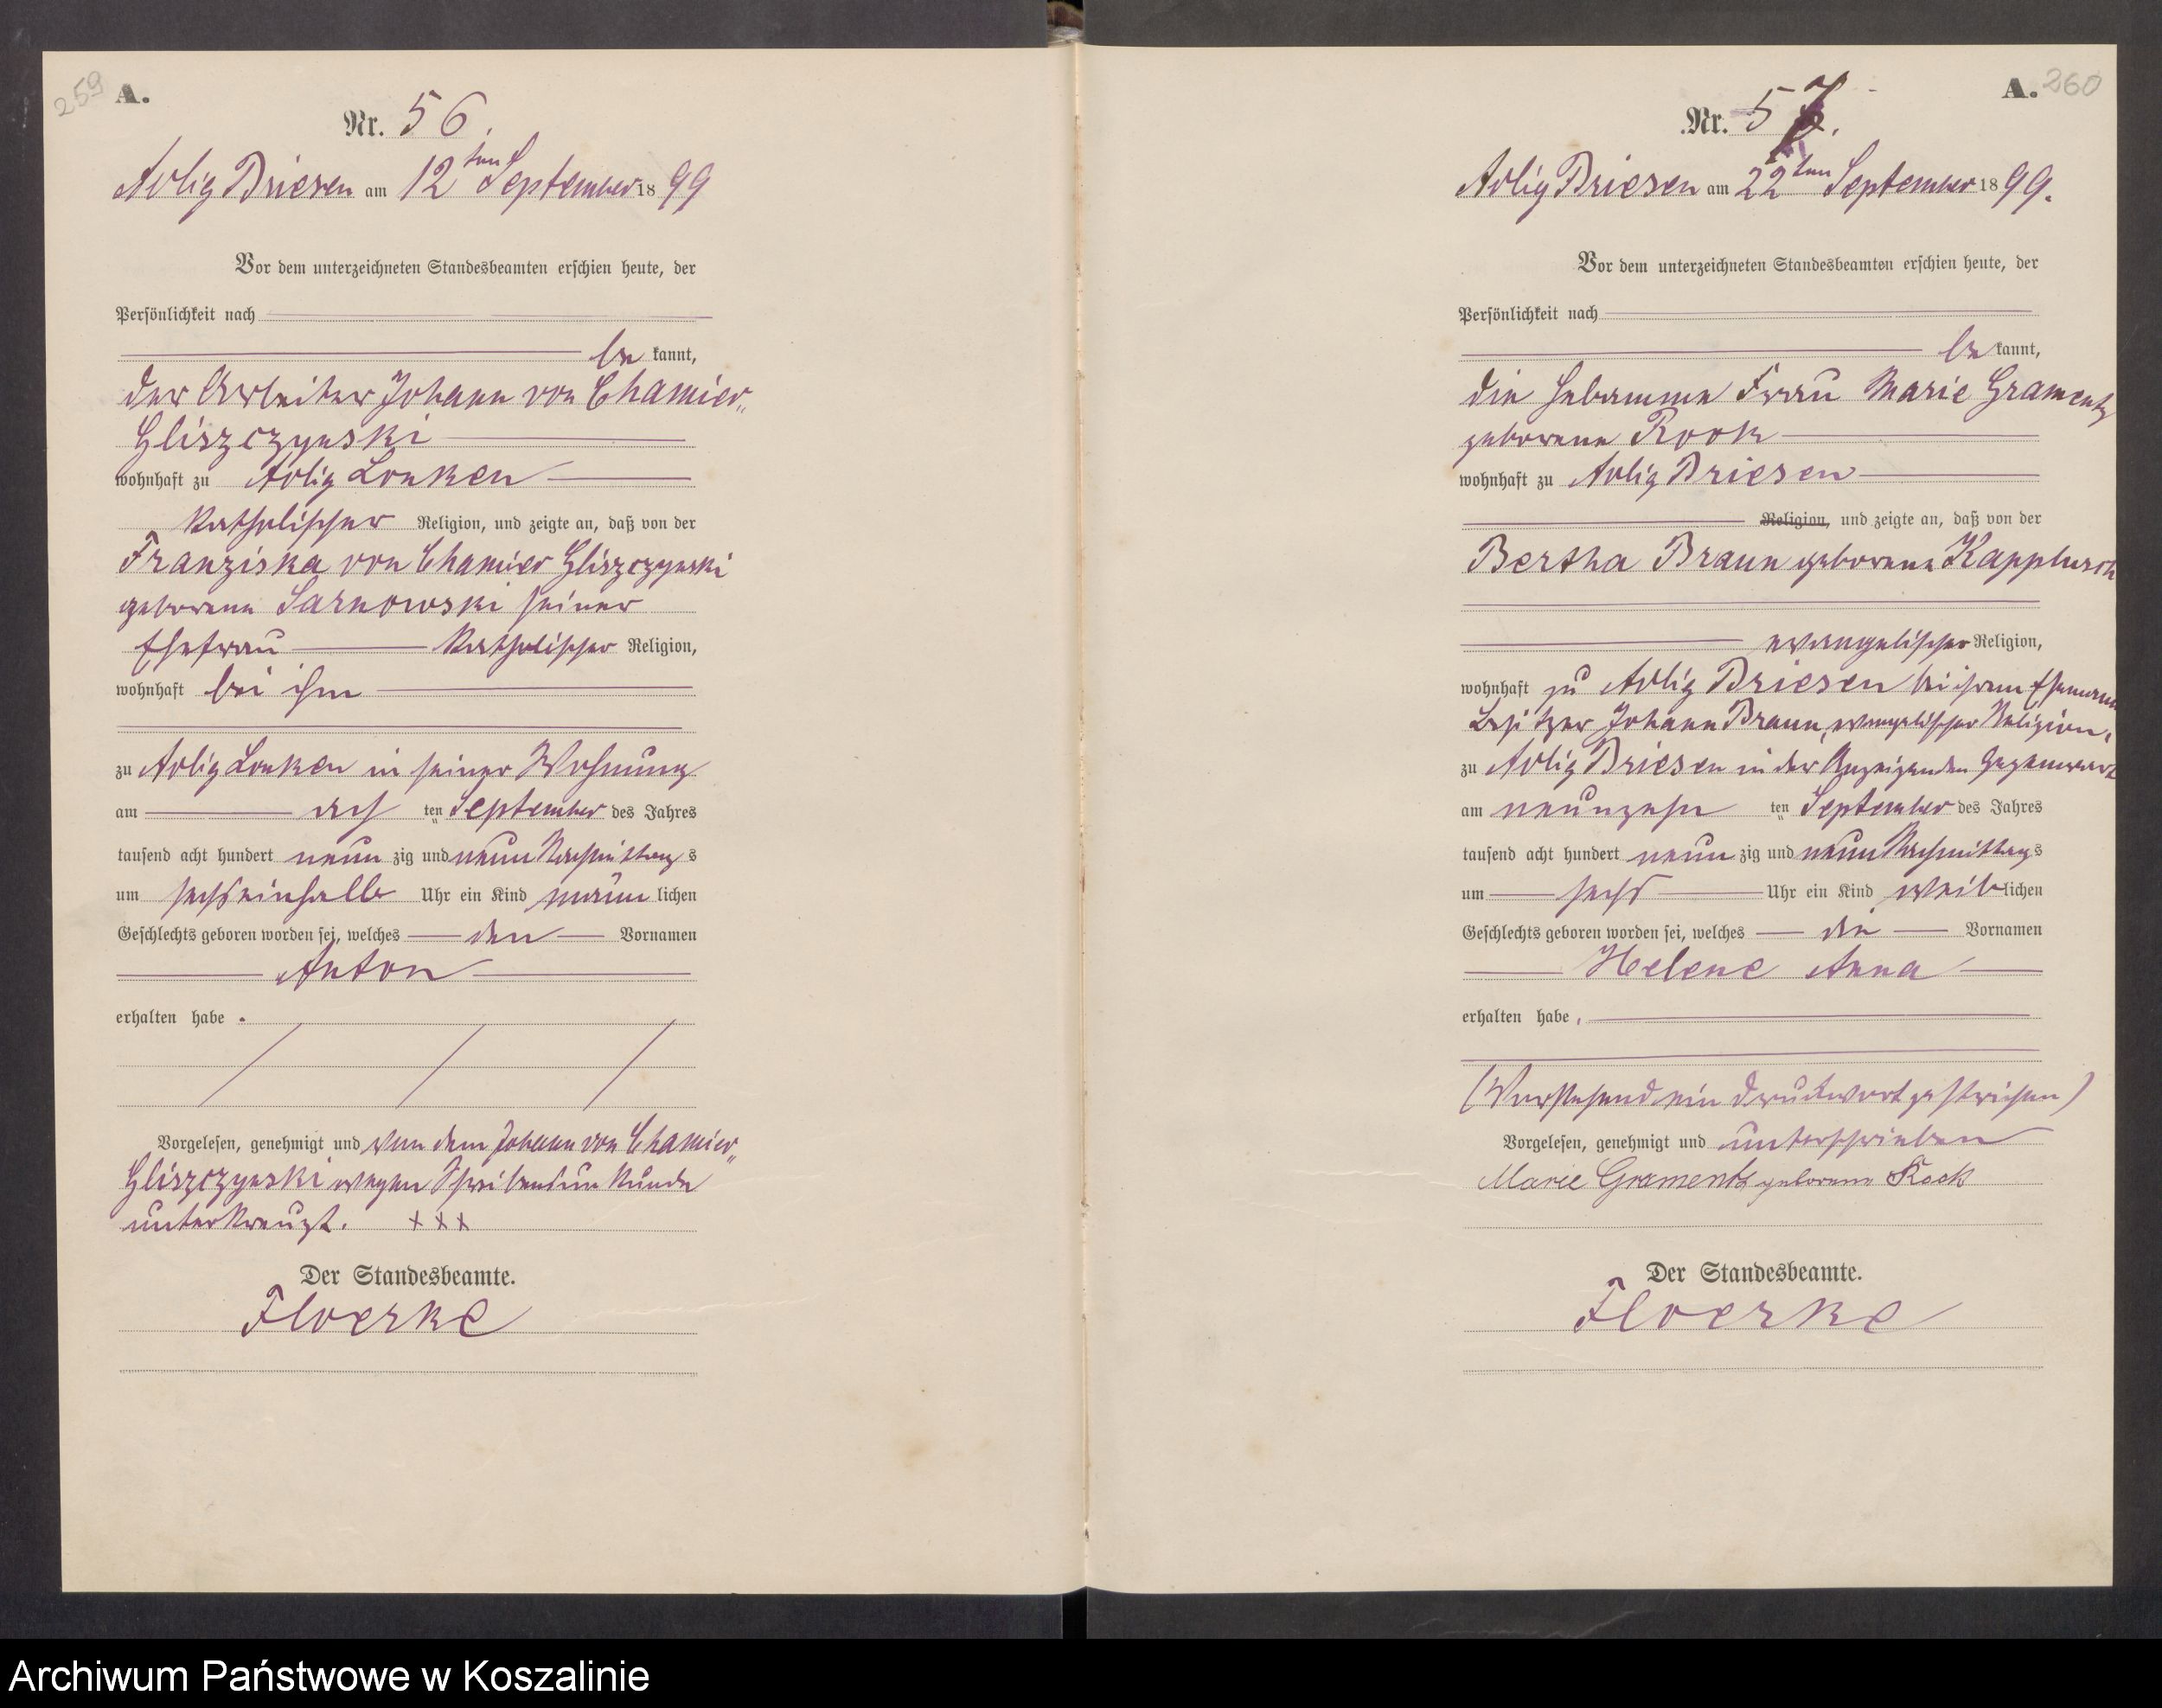 259
A.
Nr. 56.
Adlig Briesen am 12ten September 1899
Vor dem unterzeichneten Standesbeamten erschien heute, der
Persönlichkeit nach
be kannt,
der Arbeiter Johann von Chamier-
Gliszczynski
wohnhaft zu Adlig Lonken
katholischer Religion, und zeigte an, daß von der
Franziska von Chamier Gliszczynski
geborene Sarnowski seiner
Ehefrau katholischer Religion,
wohnhaft bei ihm
zu Adlig Lonken in seiner Wohnung
am ach ten September des Jahres
tausend acht hundert neun zig und neun Nachmittag s
um sechseinhalb Uhr ein Kind männ lichen
Geschlechts geboren worden sei, welches den Vornamen
Anton
erhalten habe.
Vorgelesen, genehmigt und von dem Johann von Chamier-
Gliszczynski wegen Schreibensunkunde
unterkreuzt. + + +
Der Standesbeamte.
Floerke
A. 260
Nr. 57.
Adlig Briesen am 22ten September 1899.
Vor dem unterzeichneten Standesbeamten erschien heute, der
Persönlichkeit nach
be kannt,
die Hebamme Frau Marie Gramentz
geborene Rook
wohnhaft zu Adlig Briesen
Religion, und zeigte an, daß von der
Bertha Braun geborene
evangelischer Religion,
wohnhaft zu Adlig Briesen bei ihrem Ehemann
Besitzer Johann Braun, evangelischer Religion,
zu Adlig Briesen in der Anzeigenden Gegenwart
am neunzehn ten September des Jahres
tausend acht hundert neun zig und neun Nachmittags
um sechs Uhr ein Kind weib lichen
Geschlechts geboren worden sei, welches die Vornamen
Helene Anna
erhalten habe,
(Vorstehend ein Druckwort gestrichen)
Vorgelesen, genehmigt und unterschrieben
Marie Gramentz geborene Rook
Der Standesbeamte.
Floerke
Archiwum Państwowe w Koszalinie